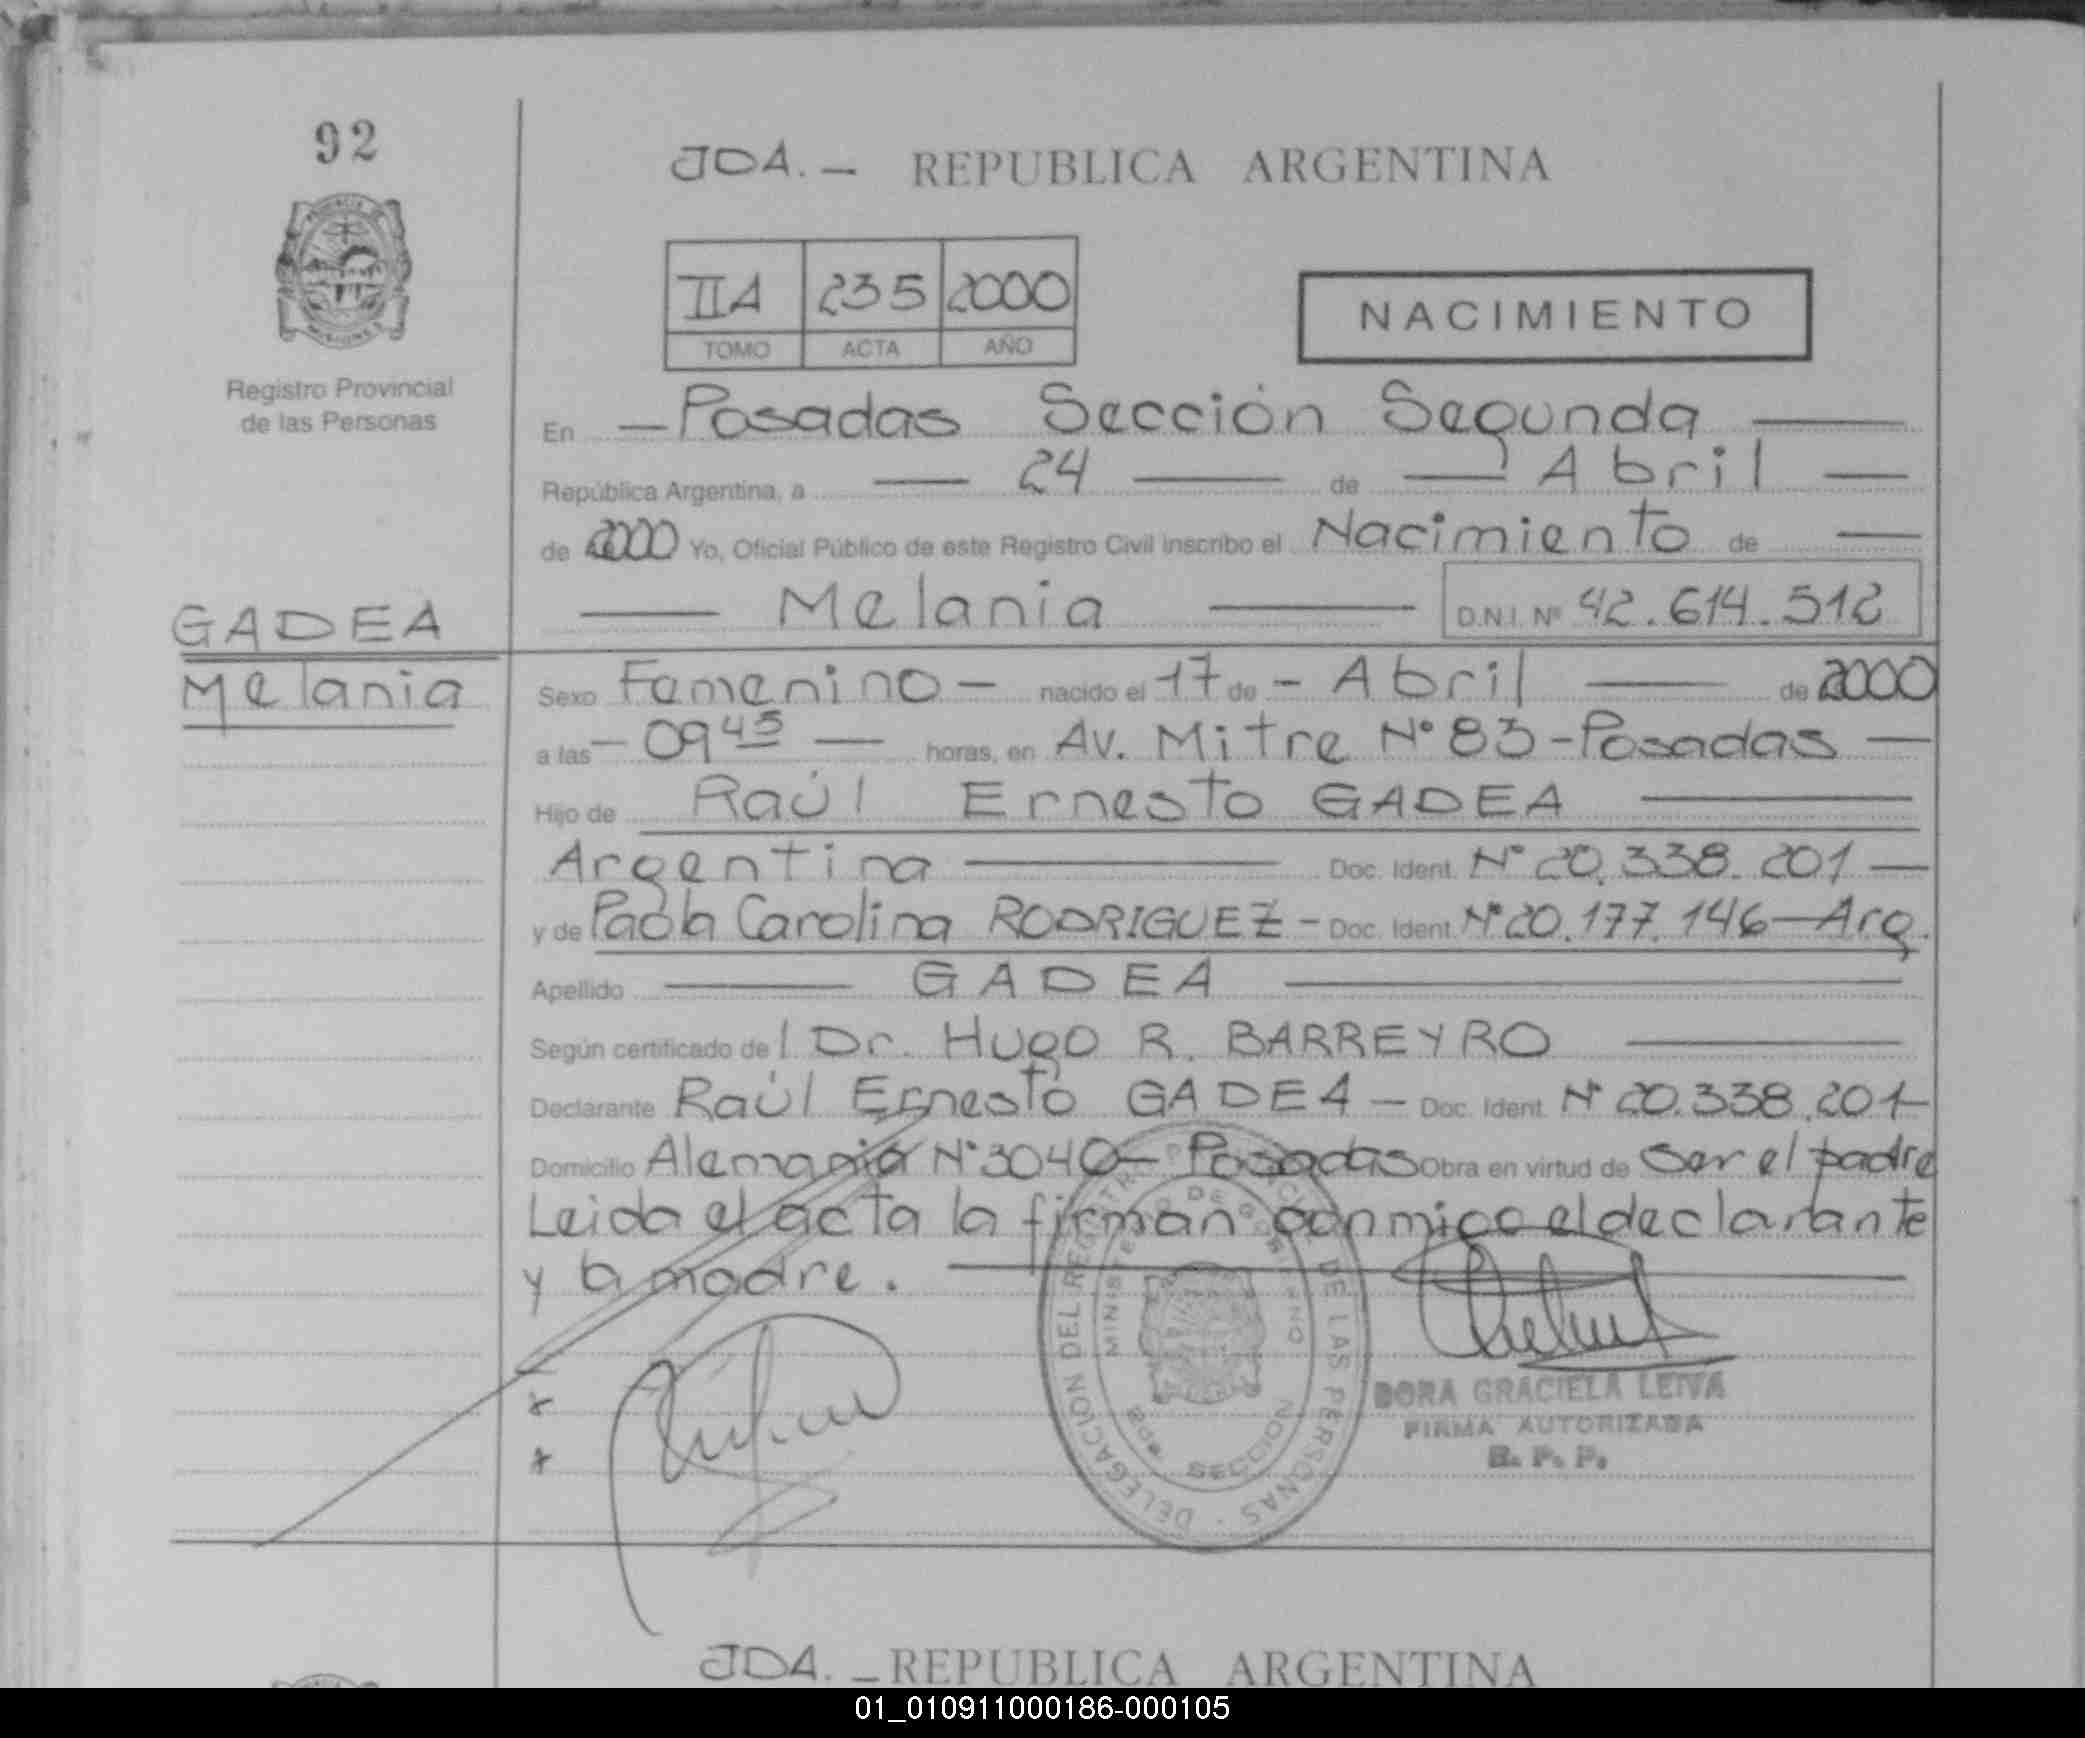 92
JDA. - REPUBLICA ARGENTINA
IIA 235 2000
TOMO ACTA AÑO
NACIMIENTO
Registro Provincial
de las Personas
En - Posadas Sección Segunda
República Argentina, a 24 de Abril
de 2000 Yo, Oficial Público de este Registro Civil inscribo el Nacimiento de
Melania D.N.I. Nº 42.614.512
GADEA
Melania
Sexo Femenino - nacido el 17 de - Abril de 2000
a las - 09 45 - horas, en Av. Mitre Nº 83 - Posadas -
Hijo de Raúl Ernesto GADEA
Argentina Doc. Ident. Nº 20.338.201 -
y de Paola Carolina RODRIGUEZ - Doc. Ident. Nº 20.177.146 - Arg.
Apellido GADEA
Según certificado del Dr. Hugo R. BARREYRO
Declarante Raúl Ernesto GADEA - Doc. Ident. Nº 20.338.201 -
Domicilio Alemania Nº 3040 - Posadas Obra en virtud de Ser el padre
Leida el acta la firman conmigo el declarante
y la madre.
DELEGACION DEL REGISTRO DE LAS PERSONAS
MINISTERIO DE GOBIERNO
SECCION
DORA GRACIELA LEIVA
FIRMA AUTORIZADA
R. P. P.
JDA. - REPUBLICA ARGENTINA
01_010911000186-000105